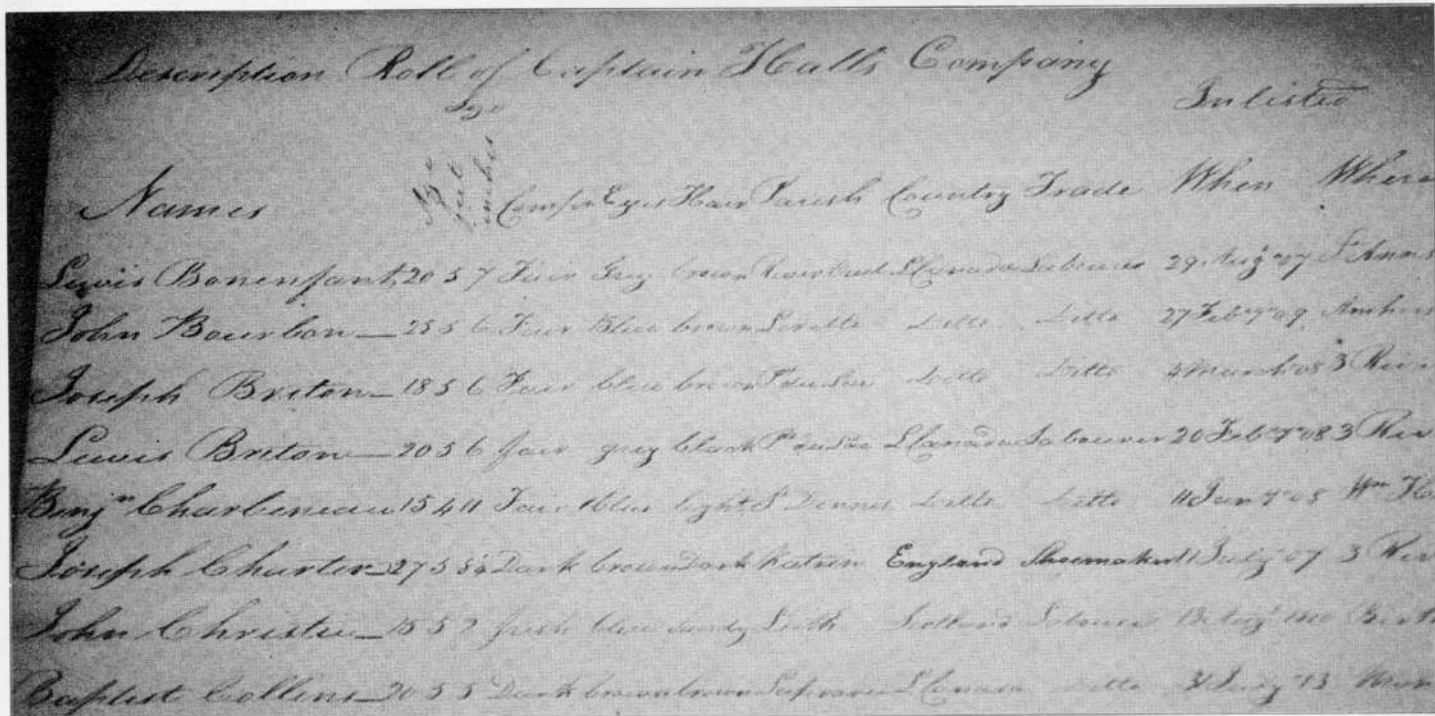 Description Roll of Captain Halls Company
Inlisted
Names Age feet inches Comp Eyes Hair Parish Country Trade When Where
Lewis Bonenfant 20 5 7 Fair Grey brown River Ouel LCanada Labourer 29 Augt 07 St Anns
John Bourbon 25 5 6 Fair Blue brown Lorette Ditto Ditto 27 Feby 09 Amhers
Joseph Briton 18 5 6 Fair blue brown Ditto Ditto 4 March 08 3 Rive
Lewis Briton 20 5 6 fair grey black LCanada Labourer 20 Feby 08 3 Riv
Benjn Charbeneau 15 4 11 Fair blue light St Dennis Ditto Ditto 11 Wm He
Joseph Charter 27 5 Dark brown Dark England Shoemaker 11 July 07 3 Riv
John Christie 5 fresh blue Sandy Leith Scotland Labourer 13 Augt Berth
Baptist Collins 20 5 5 Dark brown brown LCanada Ditto 13